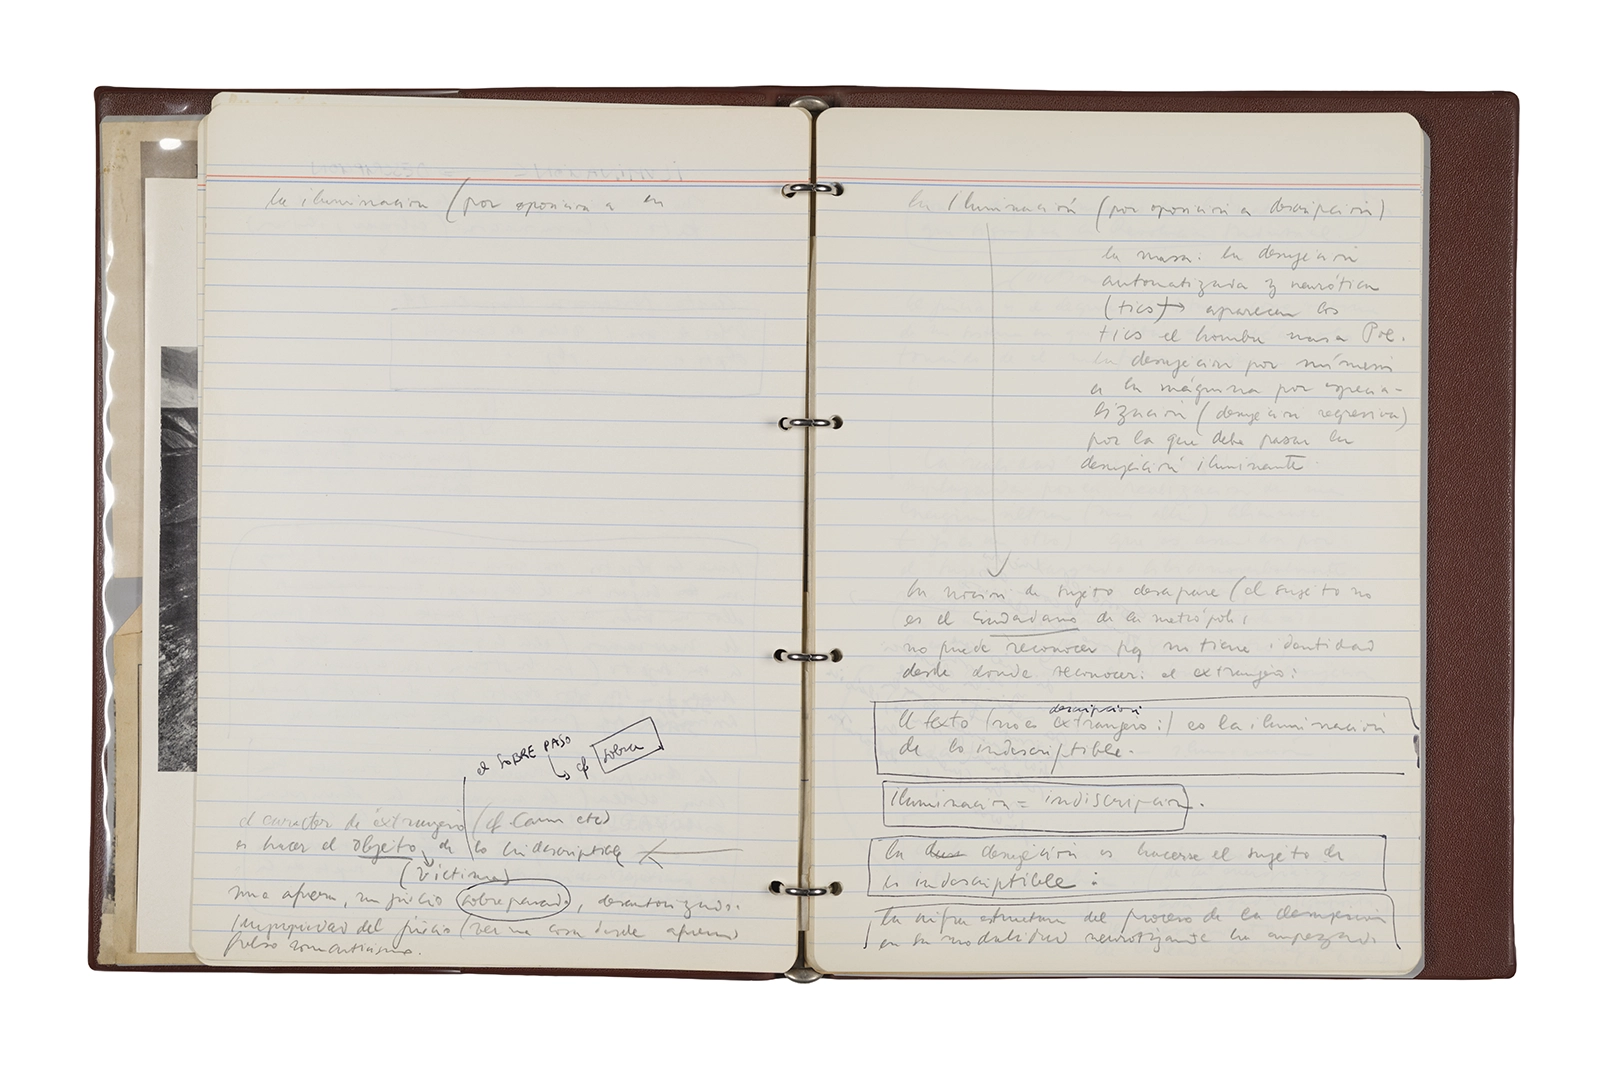 la iluminación (por oposición a la
el SOBRE PASO
cf sobra
el caracter de extranjero (cf. Camus etc)
es hacer el objeto de lo indescriptible
(víctima)
una afuera, un juicio sobrepasado, desautorizado.
Impropiedad del juicio (ver una cosa desde afuera)
falso romanticismo.
la iluminación (por oposición a descripción)
la masa: la desujeción
automatizada y neurótica
(tics) → aparecen los
tics el hombre masa Poe.
la desujeción por mímesis
a la máquina por especia-
lización (desujeción regresiva)
por la que debe pasar la
desujeción iluminante
la noción de sujeto desaparece (el sujeto no
es el ciudadano de la metrópoli
no puede reconocer pq no tiene identidad
desde donde reconocer: el extranjero:
descripción
el texto (no es extranjero:) es la iluminación
de lo indescriptible.
Iluminación = indiscripción.
la desujeción es hacerse el sujeto de
lo indescriptible:
la infra estructura del proceso de la desujeción
en su modalidad neurotizante ha empezado